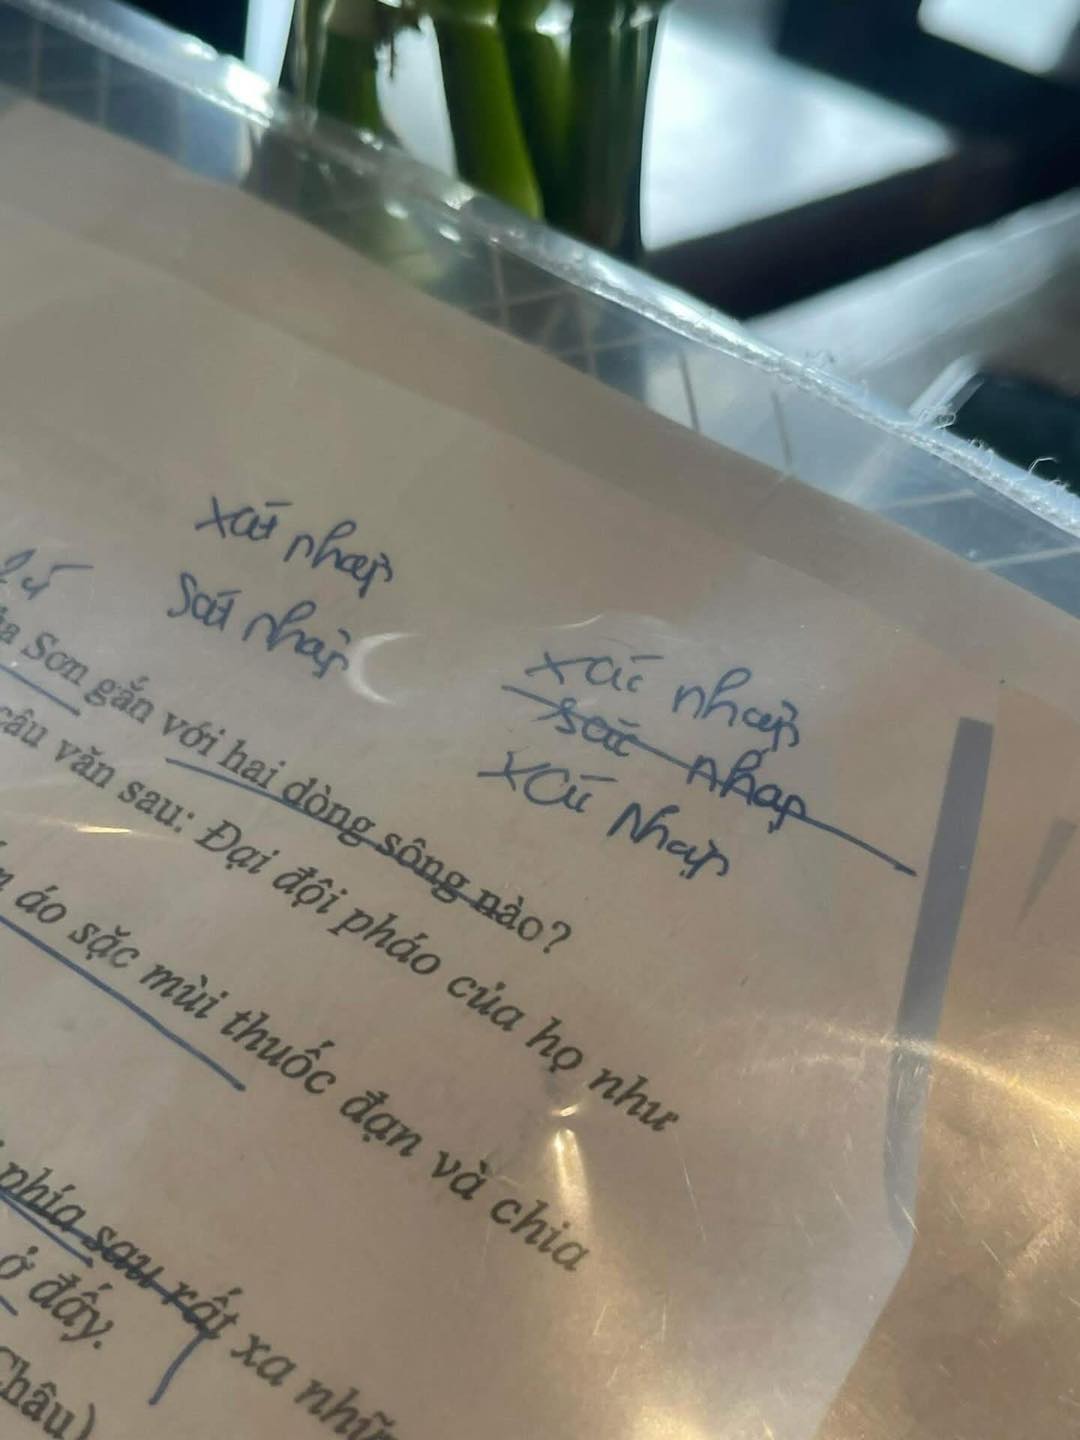 xát nhập
sát nhập
xác nhập
sát nhập
xác Nhập
Sơn gắn với hai dòng sông nào?
câu văn sau: Đại đội pháo của họ như
áo sặc mùi thuốc đạn và chia
phía sau rất xa nhữ
ở đấy.
Châu)